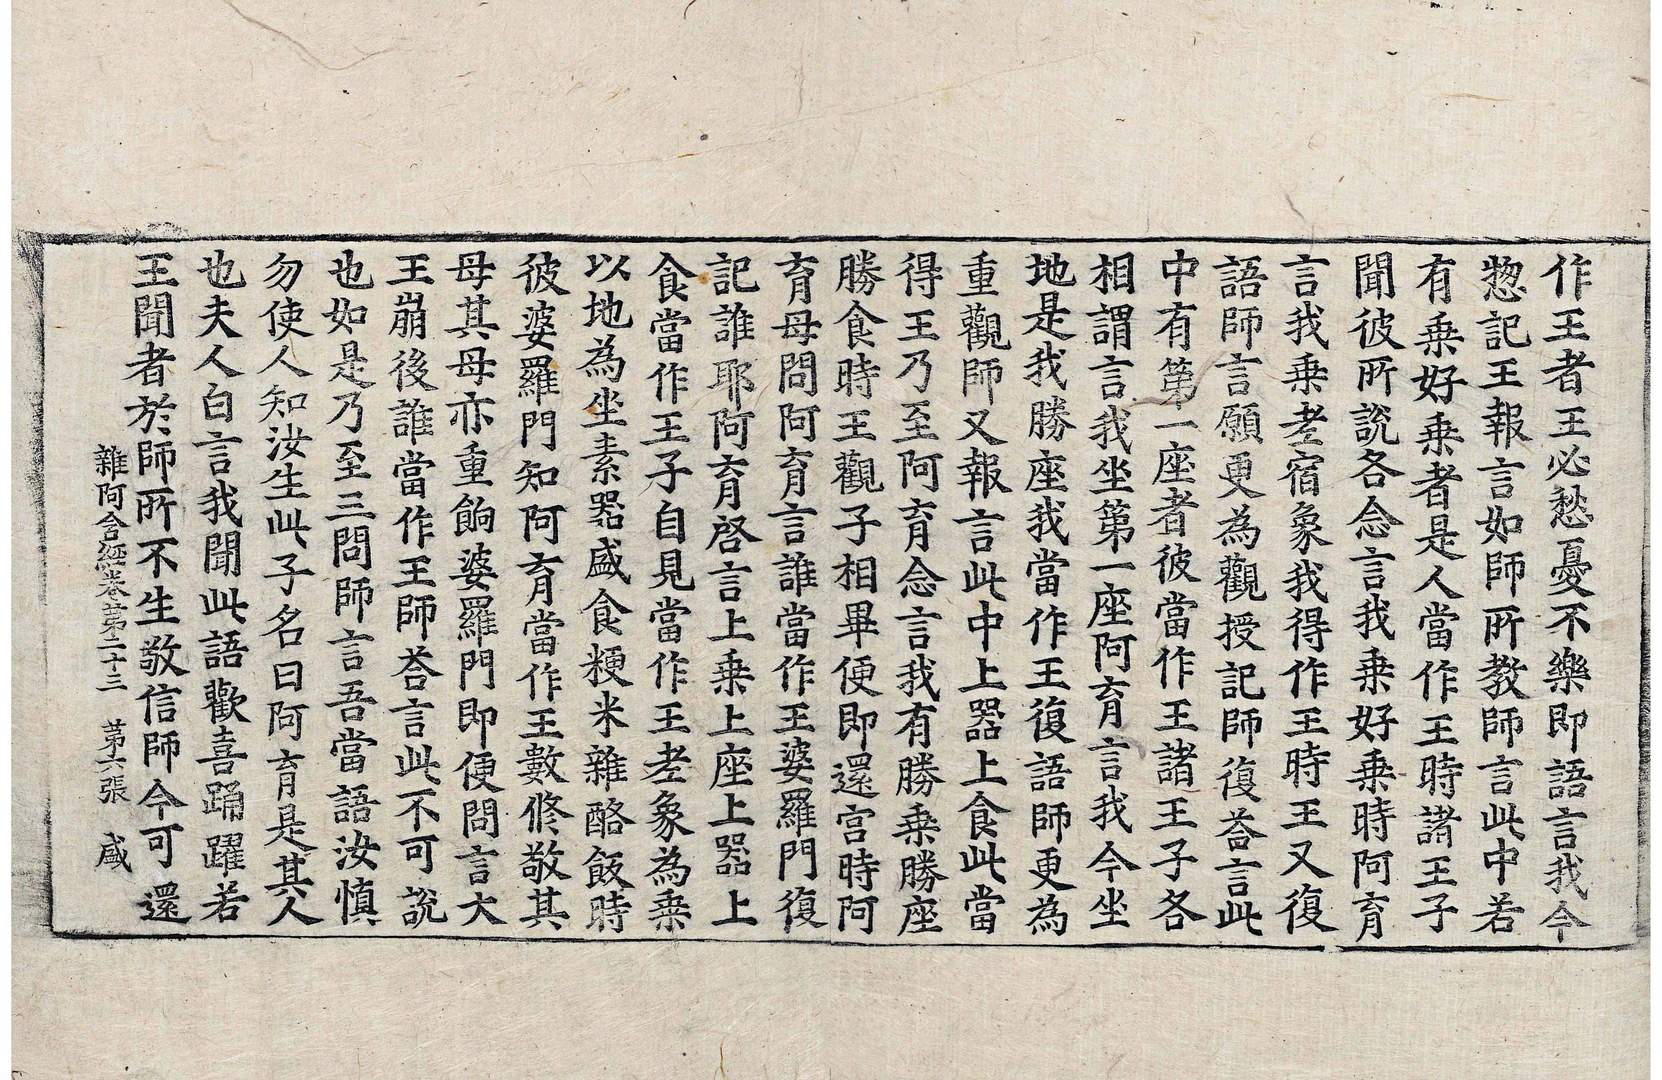 作王者王必愁憂不樂即語言我今
惣記王報言如師所教師言此中若
有乗好乗者是人當作王時諸王子
聞彼所說各念言我乗好乗時阿育
言我乗老宿象我得作王時王又復
語師言願更為觀授記師復荅言此
中有第一座者彼當作王諸王子各
相謂言我坐第一座阿育言我今坐
地是我勝座我當作王復語師更為
重觀師又報言此中上器上食此當
得王乃至阿育念言我有勝乗勝座
勝食時王觀子相畢便即還宫時阿
育母問阿育言誰當作王婆羅門復
記誰耶阿育啓言上乗上座上器上
食當作王子自見當作王老象為乗
以地為坐素器盛食粳米雜酪飯時
彼婆羅門知阿育當作王數修敬其
母其母亦重餉婆羅門即便問言大
王崩後誰當作王師荅言此不可說
也如是乃至三問師言吾當語汝慎
勿使人知汝生此子名曰阿育是其人
也夫人白言我聞此語歡喜踊躍若
王聞者於師所不生敬信師今可還
雜阿含經卷第二十三 第六張 盛